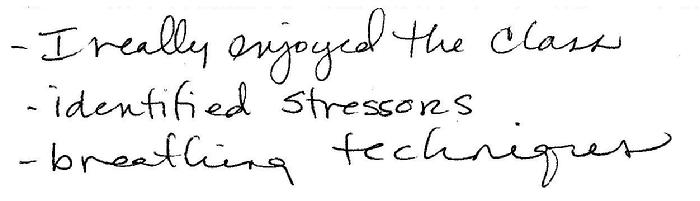 - I really enjoyed the class
- identified stressors
- breathing techniques